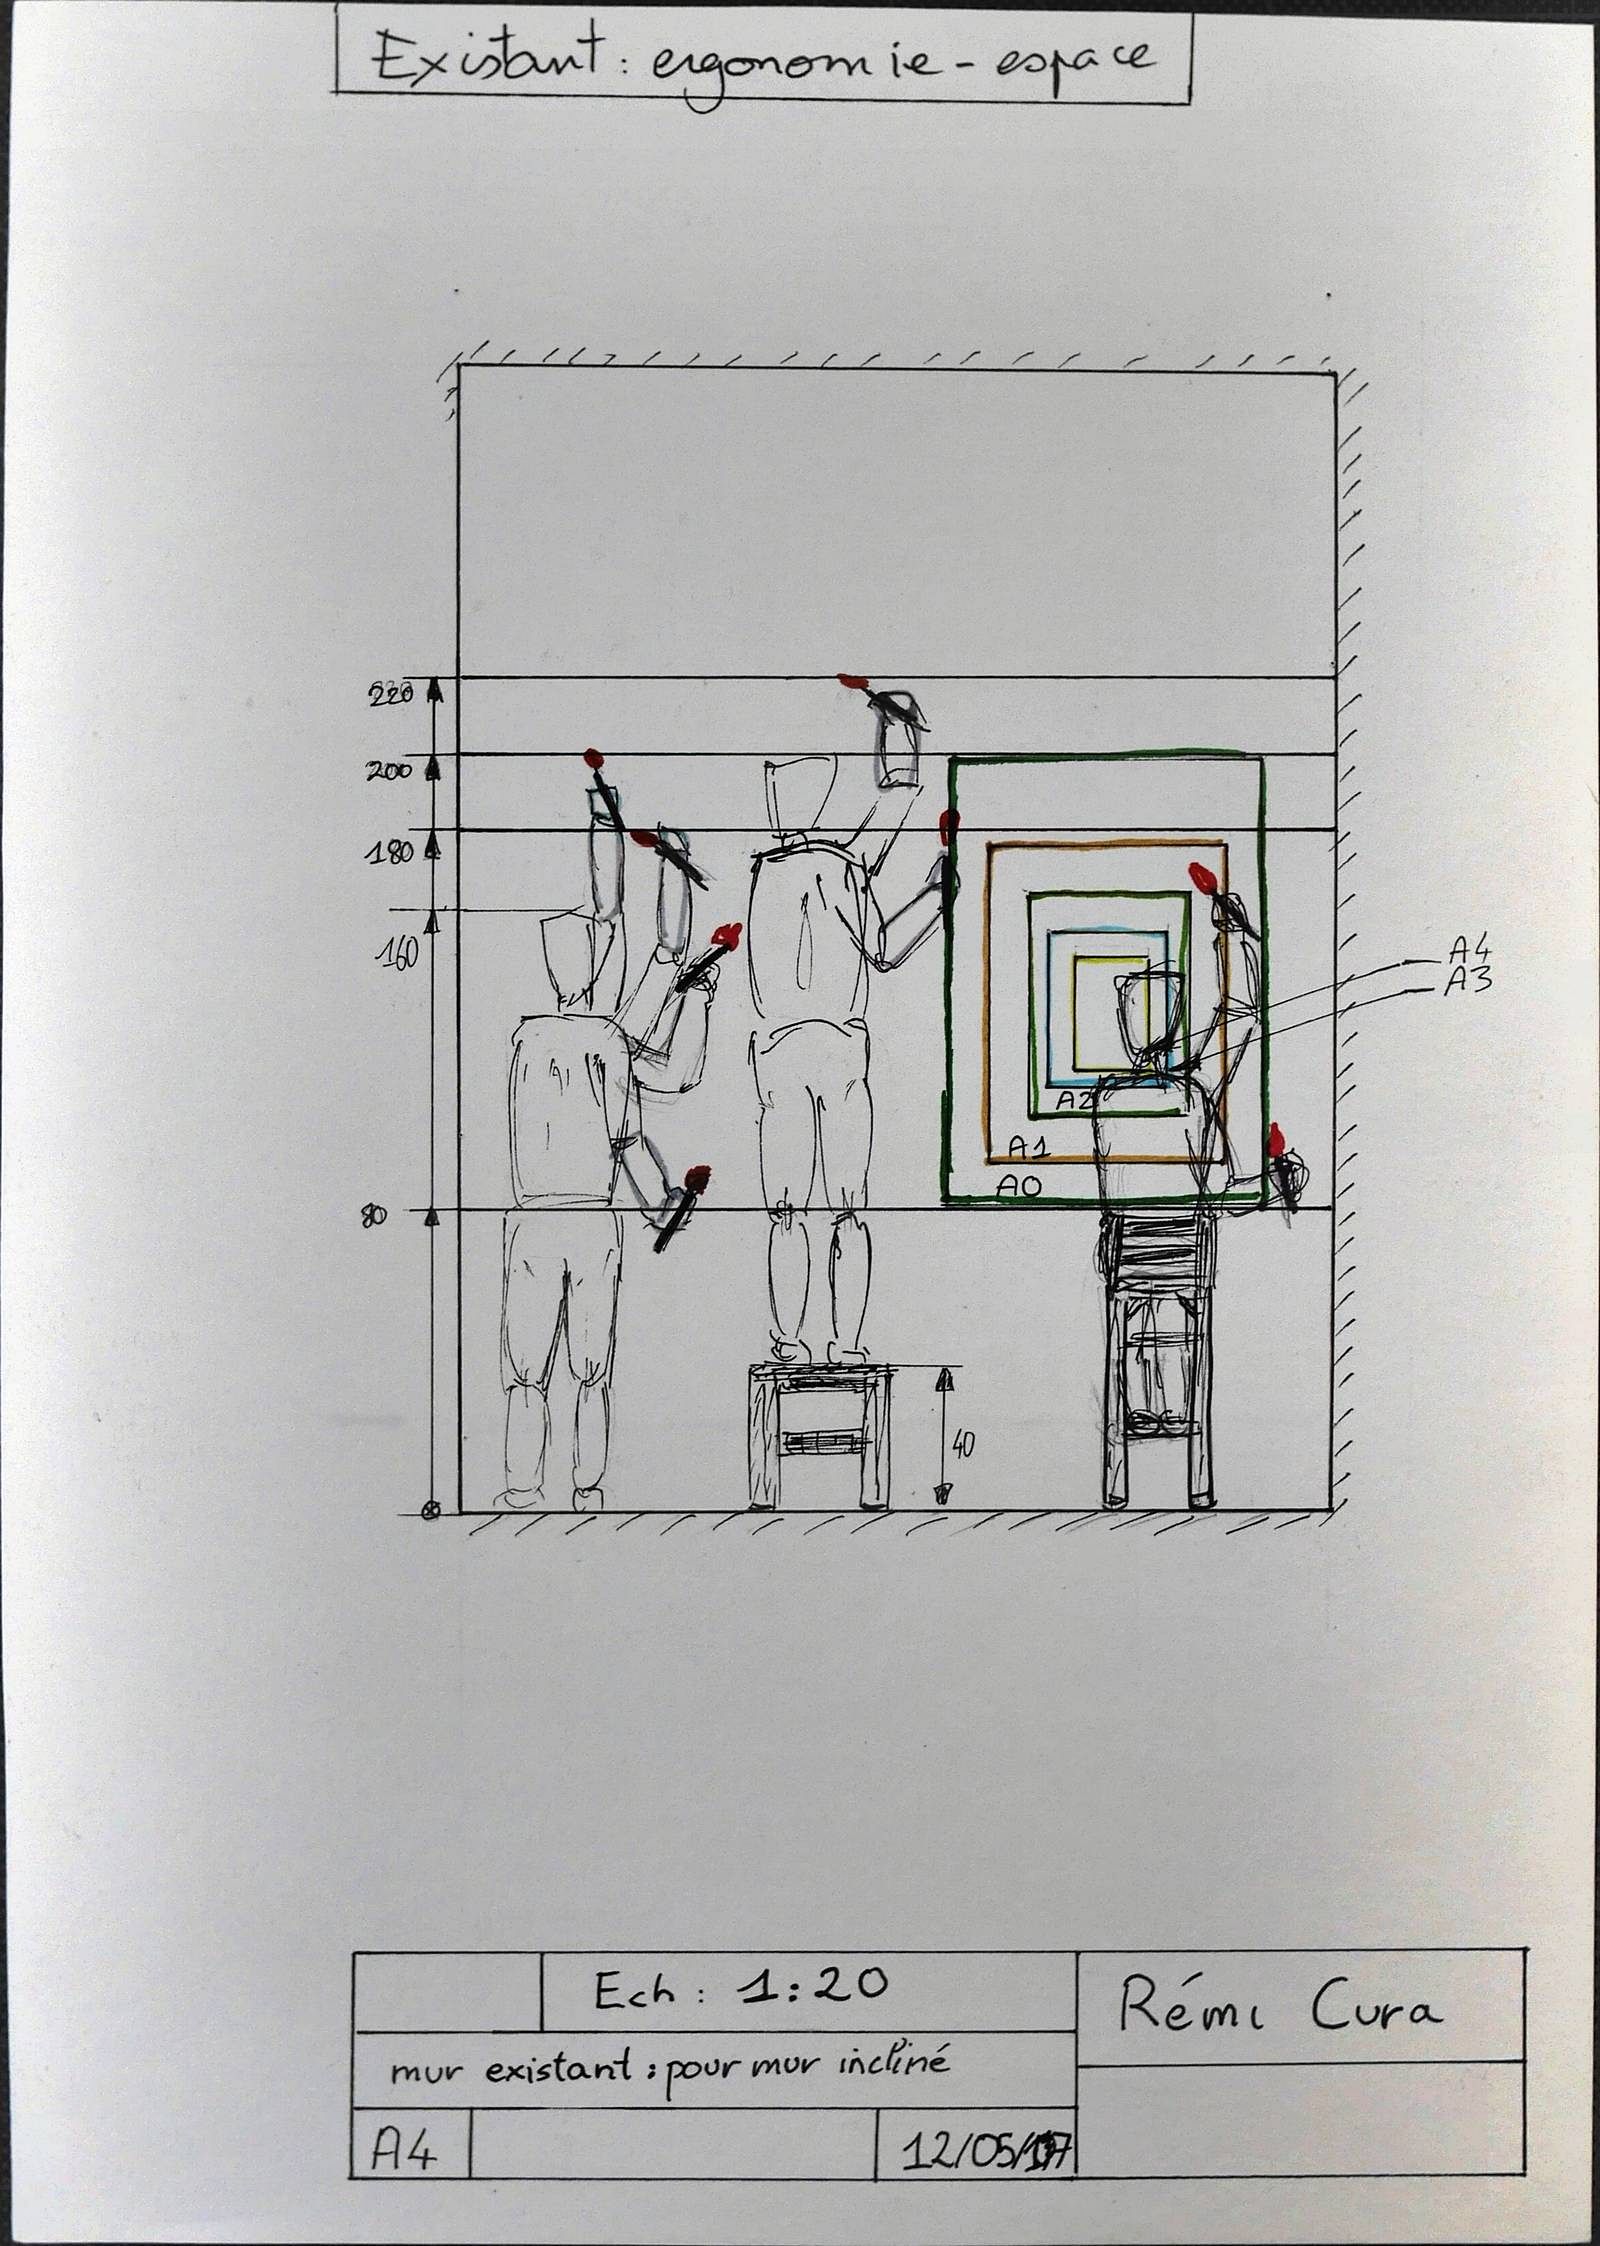 Existant : ergonomie - espace
220
200
180
160
80
A4
A3
A2
A1
A0
40
Ech : 1:20
Rémi Cura
mur existant : pour mur incliné
A4
12/05/17